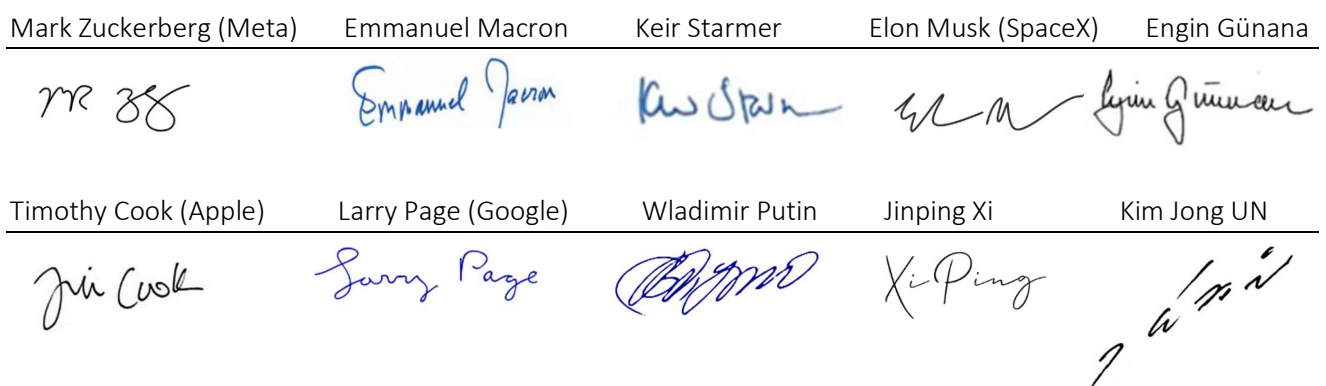 Mark Zuckerberg (Meta) Emmanuel Macron Keir Starmer Elon Musk (SpaceX) Engin Günana
Emmanuel Macron
Timothy Cook (Apple) Larry Page (Google) Wladimir Putin Jinping Xi Kim Jong UN
Tim Cook Larry Page Xi Ping